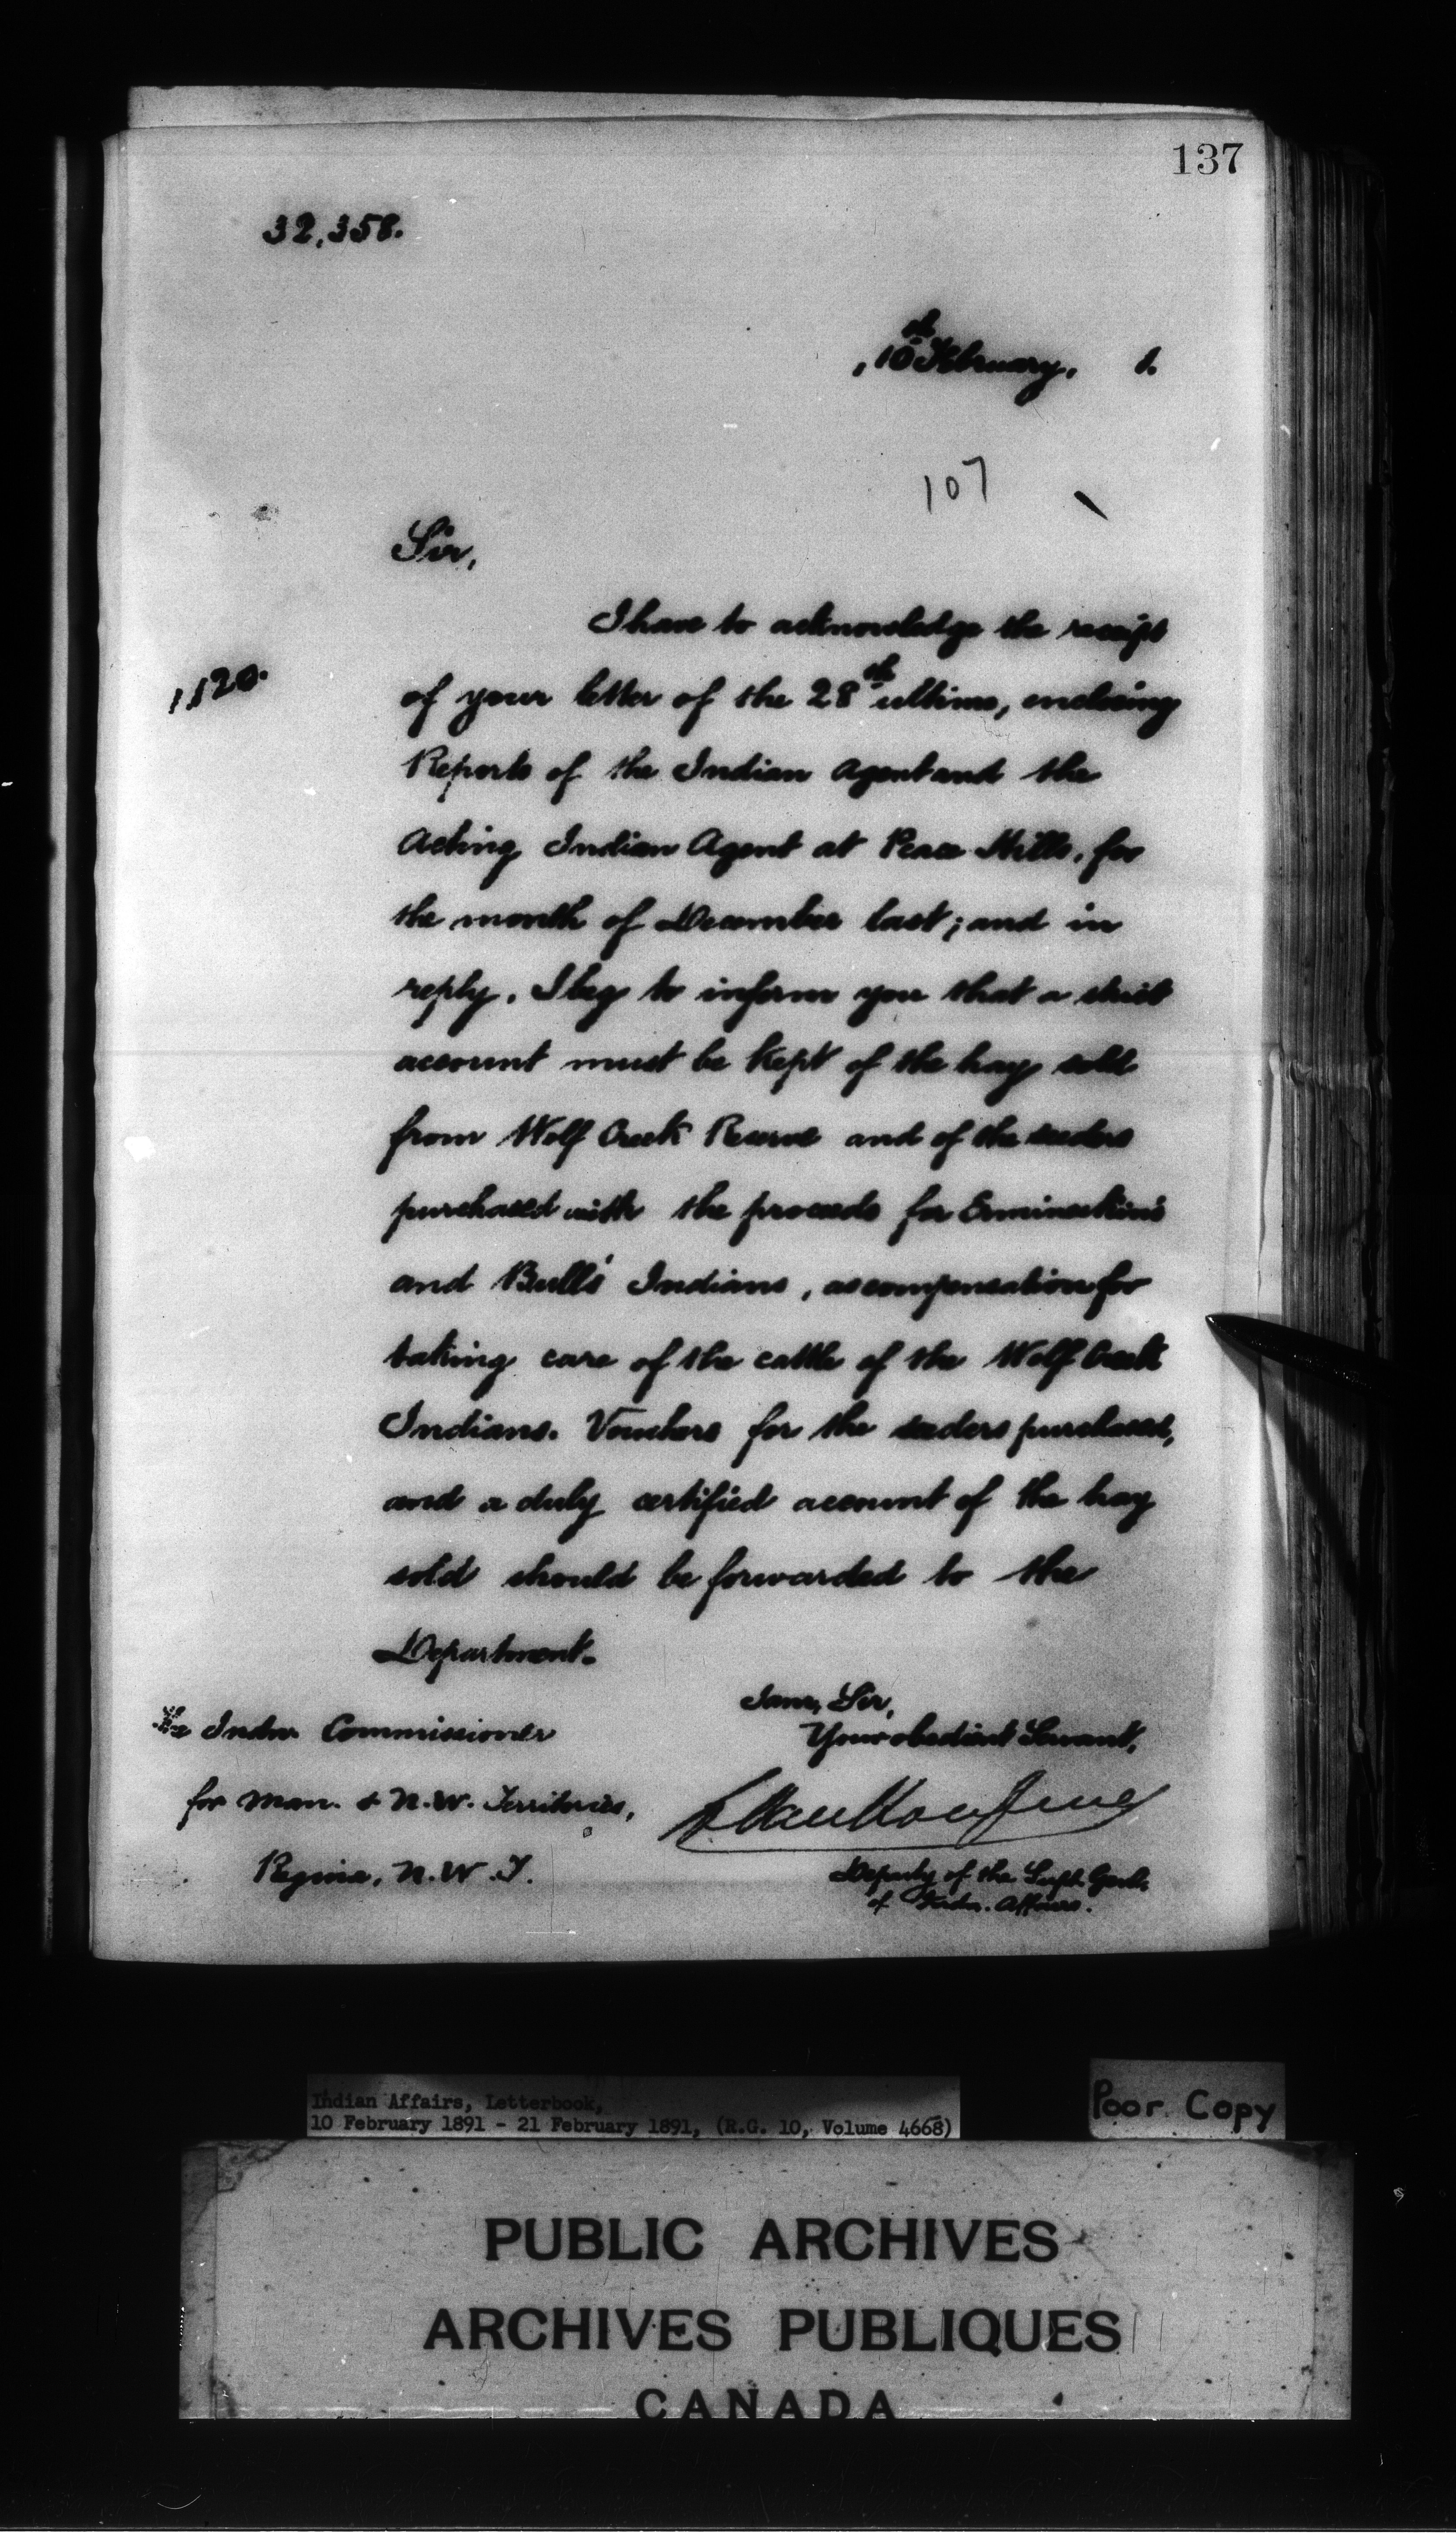 137
32,358.
, 10th February, 1.
107
Sir,
I have to acknowledge the receipt
1120.
of your letter of the 28th ultimo, enclosing
Reports of the Indian Agent and the
Acting Indian Agent at Peace Hills, for
the month of December last; and in
reply, I beg to inform you that a strict
account must be kept of the hay sold
from Wolf Creek Reserve and of the seeders
purchased with the proceeds for Ermineskin's
and Bull's Indians, as compensation for
taking care of the cattle of the Wolf Creek
Indians. Vouchers for the seeders purchased,
and a duly certified account of the hay
sold should be forwarded to the
Department.
I am, Sir,
Your obedient Servant,
The Indn. Commissioner
for Man. & N.W. Territories,
Regina, N.W.T.
L Vankoughnet
Deputy of the Supt. Genl.
of Indn. Affairs.
Indian Affairs, Letterbook,
10 February 1891 - 21 February 1891, (R.G. 10, Volume 4668)
Poor Copy
PUBLIC ARCHIVES
ARCHIVES PUBLIQUES
CANADA